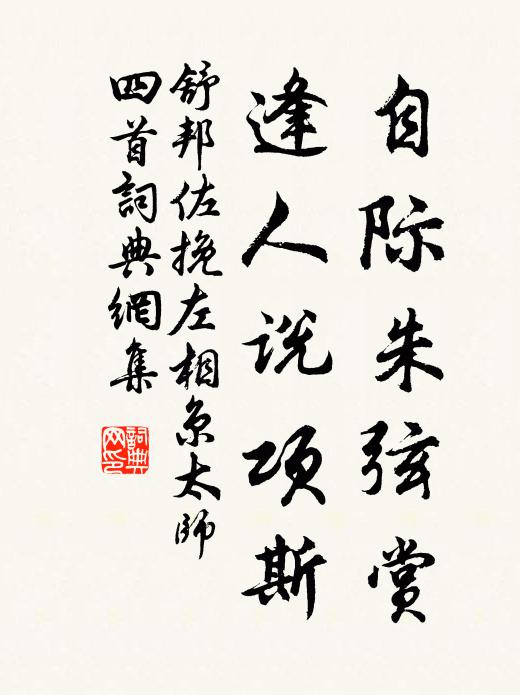 自际朱弦赏
逢人说项斯
舒邦佐挽左相京太师
四首詞典網集
詞典
网印